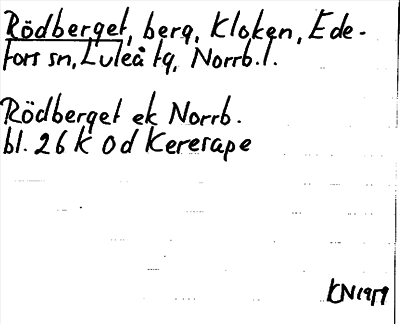 Rödberget, berg, Kloken, Ede-
fors sn, Luleå tg, Norrb.l.
Rödberget ek Norrb.
bl. 26 K 0d Keresape